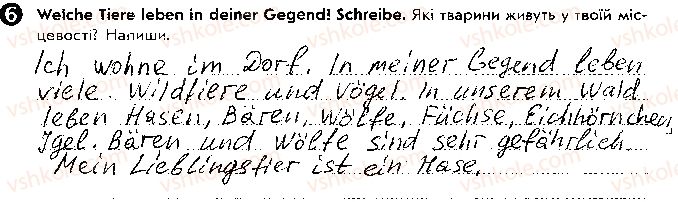 6 Welche Tiere leben in deiner Gegend? Schreibe. Які тварини живуть у твоїй міс-
цевості? Напиши.
Ich wohne im Dorf. In meiner Gegend leben
viele Wildtiere und Vögel. In unserem Wald
leben Hasen, Bären, Wölfe, Füchse, Eichhörnchen,
Igel. Bären und Wölfe sind sehr gefährlich.
Mein Lieblingstier ist ein Hase.